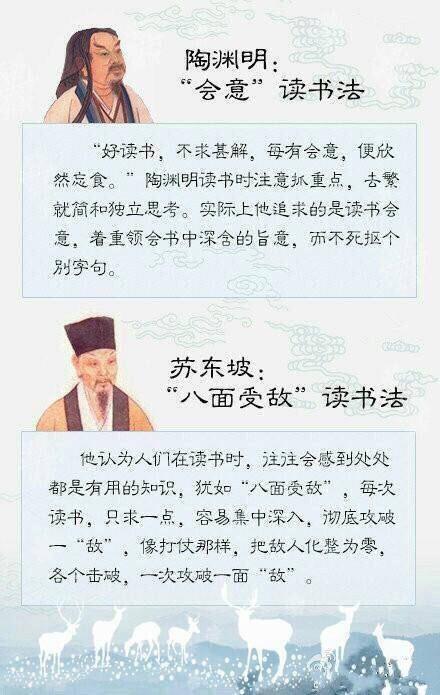 陶渊明：
“会意”读书法
“好读书，不求甚解，每有会意，便欣
然忘食。”陶渊明读书时注意抓重点，去繁
就简和独立思考。实际上他追求的是读书会
意，着重领会书中深含的旨意，而不死抠个
别字句。
苏东坡：
“八面受敌”读书法
他认为人们在读书时，往往会感到处处
都是有用的知识，犹如“八面受敌”，每次
读书，只求一点，容易集中深入，彻底攻破
一“敌”，像打仗那样，把敌人化整为零，
各个击破，一次攻破一面“敌”。